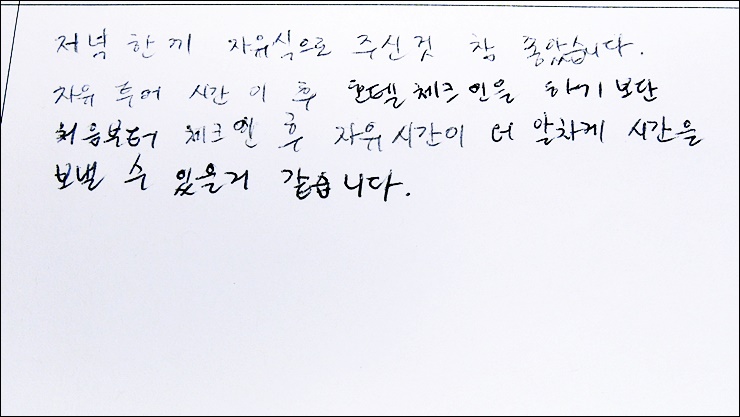 저녁 한끼 자유식으로 주신것 참 좋았습니다.
자유 투어 시간 이후 호텔 체크인을 하기 보단
처음부터 체크인 후 자유시간이 더 알차게 시간을
보낼 수 있을거 같습니다.